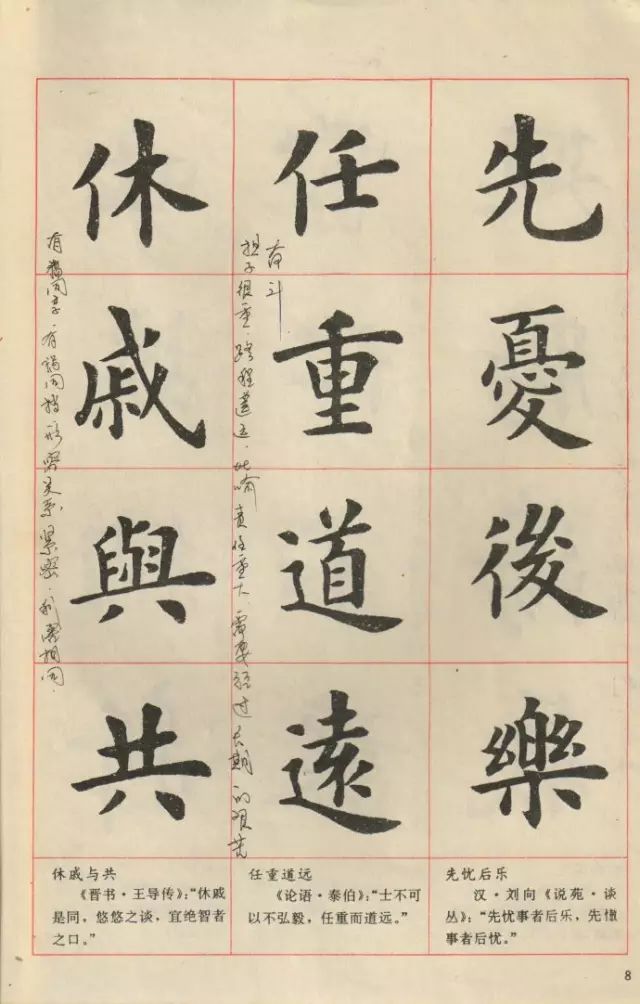 先憂後樂
任重道遠
休戚與共
奋斗
担子很重，路程遥远，比喻责任重大，需要经过长期的艰苦
有福同享，有祸同当，形容关系紧密，利害相同。
先忧后乐
汉·刘向《说苑·谈
丛》：“先忧事者后乐，先憿
事者后忧。”
任重道远
《论语·泰伯》：“士不可
以不弘毅，任重而道远。”
休戚与共
《晋书·王导传》：“休戚
是同，悠悠之谈，宜绝智者
之口。”
8